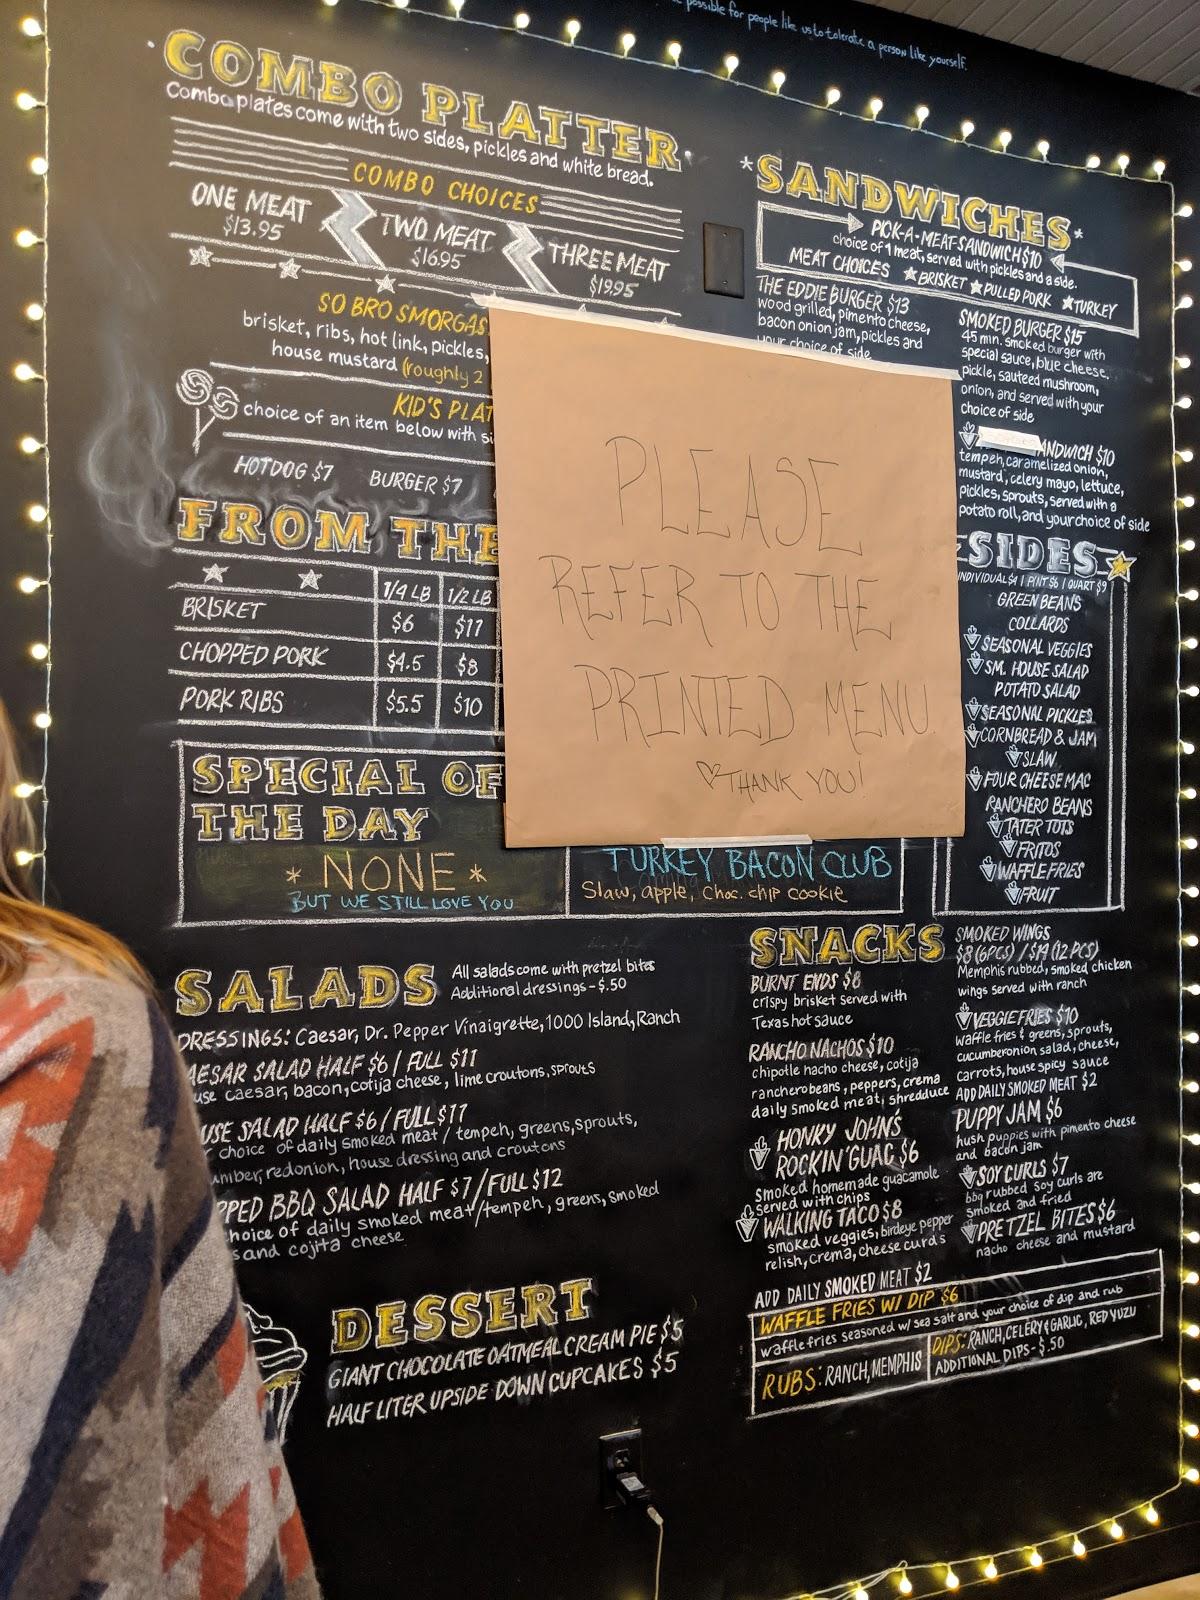 possible for people like us to tolerate a person like yourself.
COMBO PLATTER
Combo plates come with two sides, pickles and white bread.
COMBO CHOICES
ONE MEAT
$13.95
TWO MEAT
$16.95
THREE MEAT
$19.95
SO BRO SMORGAS
brisket, ribs, hot link, pickles,
house mustard (roughly 2
KID'S PLAT
choice of an item below with si
HOTDOG $7 BURGER $7
FROM THE
1/4 LB 1/2 LB
BRISKET $6 $11
CHOPPED PORK $4.5 $8
PORK RIBS $5.5 $10
SPECIAL OF
THE DAY
* NONE *
BUT WE STILL LOVE YOU
TURKEY BACON CLUB
Slaw, apple, choc. chip cookie
PLEASE
REFER TO THE
PRINTED MENU.
THANK YOU!
*SANDWICHES*
PICK-A-MEAT-SANDWICH $10
choice of 1 meat, served with pickles and a side.
MEAT CHOICES ★BRISKET ★PULLED PORK ★TURKEY
THE EDDIE BURGER $13
wood grilled, pimento cheese,
bacon onion jam, pickles and
your choice of side
SMOKED BURGER $15
45 min. smoked burger with
special sauce, blue cheese,
pickle, sauteed mushroom,
onion, and served with your
choice of side
ANDWICH $10
tempeh, caramelized onion,
mustard, celery mayo, lettuce,
pickles, sprouts, served with a
potato roll, and your choice of side
SIDES
INDIVIDUAL $4 | PINT $6 | QUART $9
GREEN BEANS
COLLARDS
SEASONAL VEGGIES
SM. HOUSE SALAD
POTATO SALAD
SEASONAL PICKLES
CORNBREAD & JAM
SLAW
FOUR CHEESE MAC
RANCHERO BEANS
TATER TOTS
FRITOS
WAFFLE FRIES
FRUIT
SALADS
All salads come with pretzel bites
Additional dressings - $.50
DRESSINGS: Caesar, Dr. Pepper Vinaigrette, 1000 Island, Ranch
AESAR SALAD HALF $6 / FULL $11
use caesar, bacon, cotija cheese, lime croutons, sprouts
USE SALAD HALF $6 / FULL $11
choice of daily smoked meat / tempeh, greens, sprouts,
umber, red onion, house dressing and croutons
PPED BBQ SALAD HALF $7 / FULL $12
hoice of daily smoked meat / tempeh, greens, smoked
s and cojita cheese
DESSERT
GIANT CHOCOLATE OATMEAL CREAM PIE $5
HALF LITER UPSIDE DOWN CUPCAKES $5
SNACKS
BURNT ENDS $8
crispy brisket served with
Texas hot sauce
RANCHO NACHOS $10
chipotle nacho cheese, cotija
ranchero beans, peppers, crema
daily smoked meat, shredduce
HONKY JOHN'S
ROCKIN' GUAC $6
smoked homemade guacamole
served with chips
WALKING TACO $8
smoked veggies, birdeye pepper
relish, crema, cheese curds
ADD DAILY SMOKED MEAT $2
SMOKED WINGS
$8 (6 PCS) / $14 (12 PCS)
Memphis rubbed, smoked chicken
wings served with ranch
VEGGIE FRIES $10
waffle fries & greens, sprouts,
cucumber onion salad, cheese,
carrots, house spicy sauce
ADD DAILY SMOKED MEAT $2
PUPPY JAM $6
hush puppies with pimento cheese
and bacon jam
SOY CURLS $7
bbq rubbed soy curls are
smoked and fried
PRETZEL BITES $6
nacho cheese and mustard
WAFFLE FRIES W/ DIP $6
waffle fries seasoned w/ sea salt and your choice of dip and rub
RUBS: RANCH, MEMPHIS
DIPS: RANCH, CELERY & GARLIC, RED YUZU
ADDITIONAL DIPS - $.50